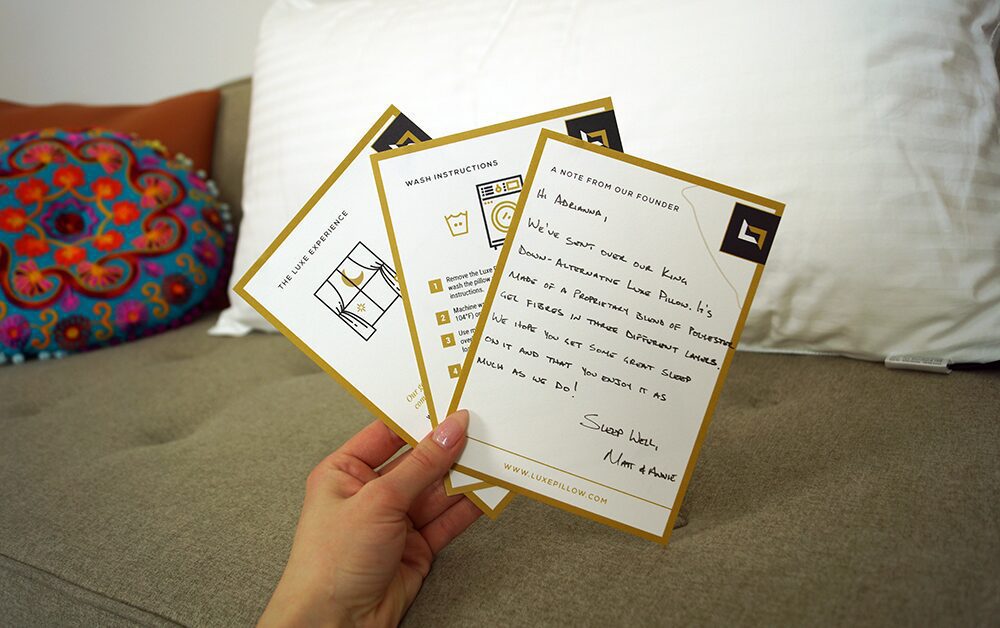 THE LUXE EXPERIENCE
Our g
com
WASH INSTRUCTIONS
1 Remove the Luxe
wash the pillow
instructions.
2 Machine w
104°F) o
3 Use m
over
lo
4
A NOTE FROM OUR FOUNDER
HI ADRIANNA,
WE'VE SENT OVER OUR KING
DOWN-ALTERNATIVE LUXE PILLOW. IT'S
MADE OF A PROPRIETARY BLEND OF POLYESTER
GEL FIBRES IN THREE DIFFERENT LAYERS.
WE HOPE YOU GET SOME GREAT SLEEP
ON IT AND THAT YOU ENJOY IT AS
MUCH AS WE DO!
SLEEP WELL,
MATT & ANNIE
WWW.LUXEPILLOW.COM